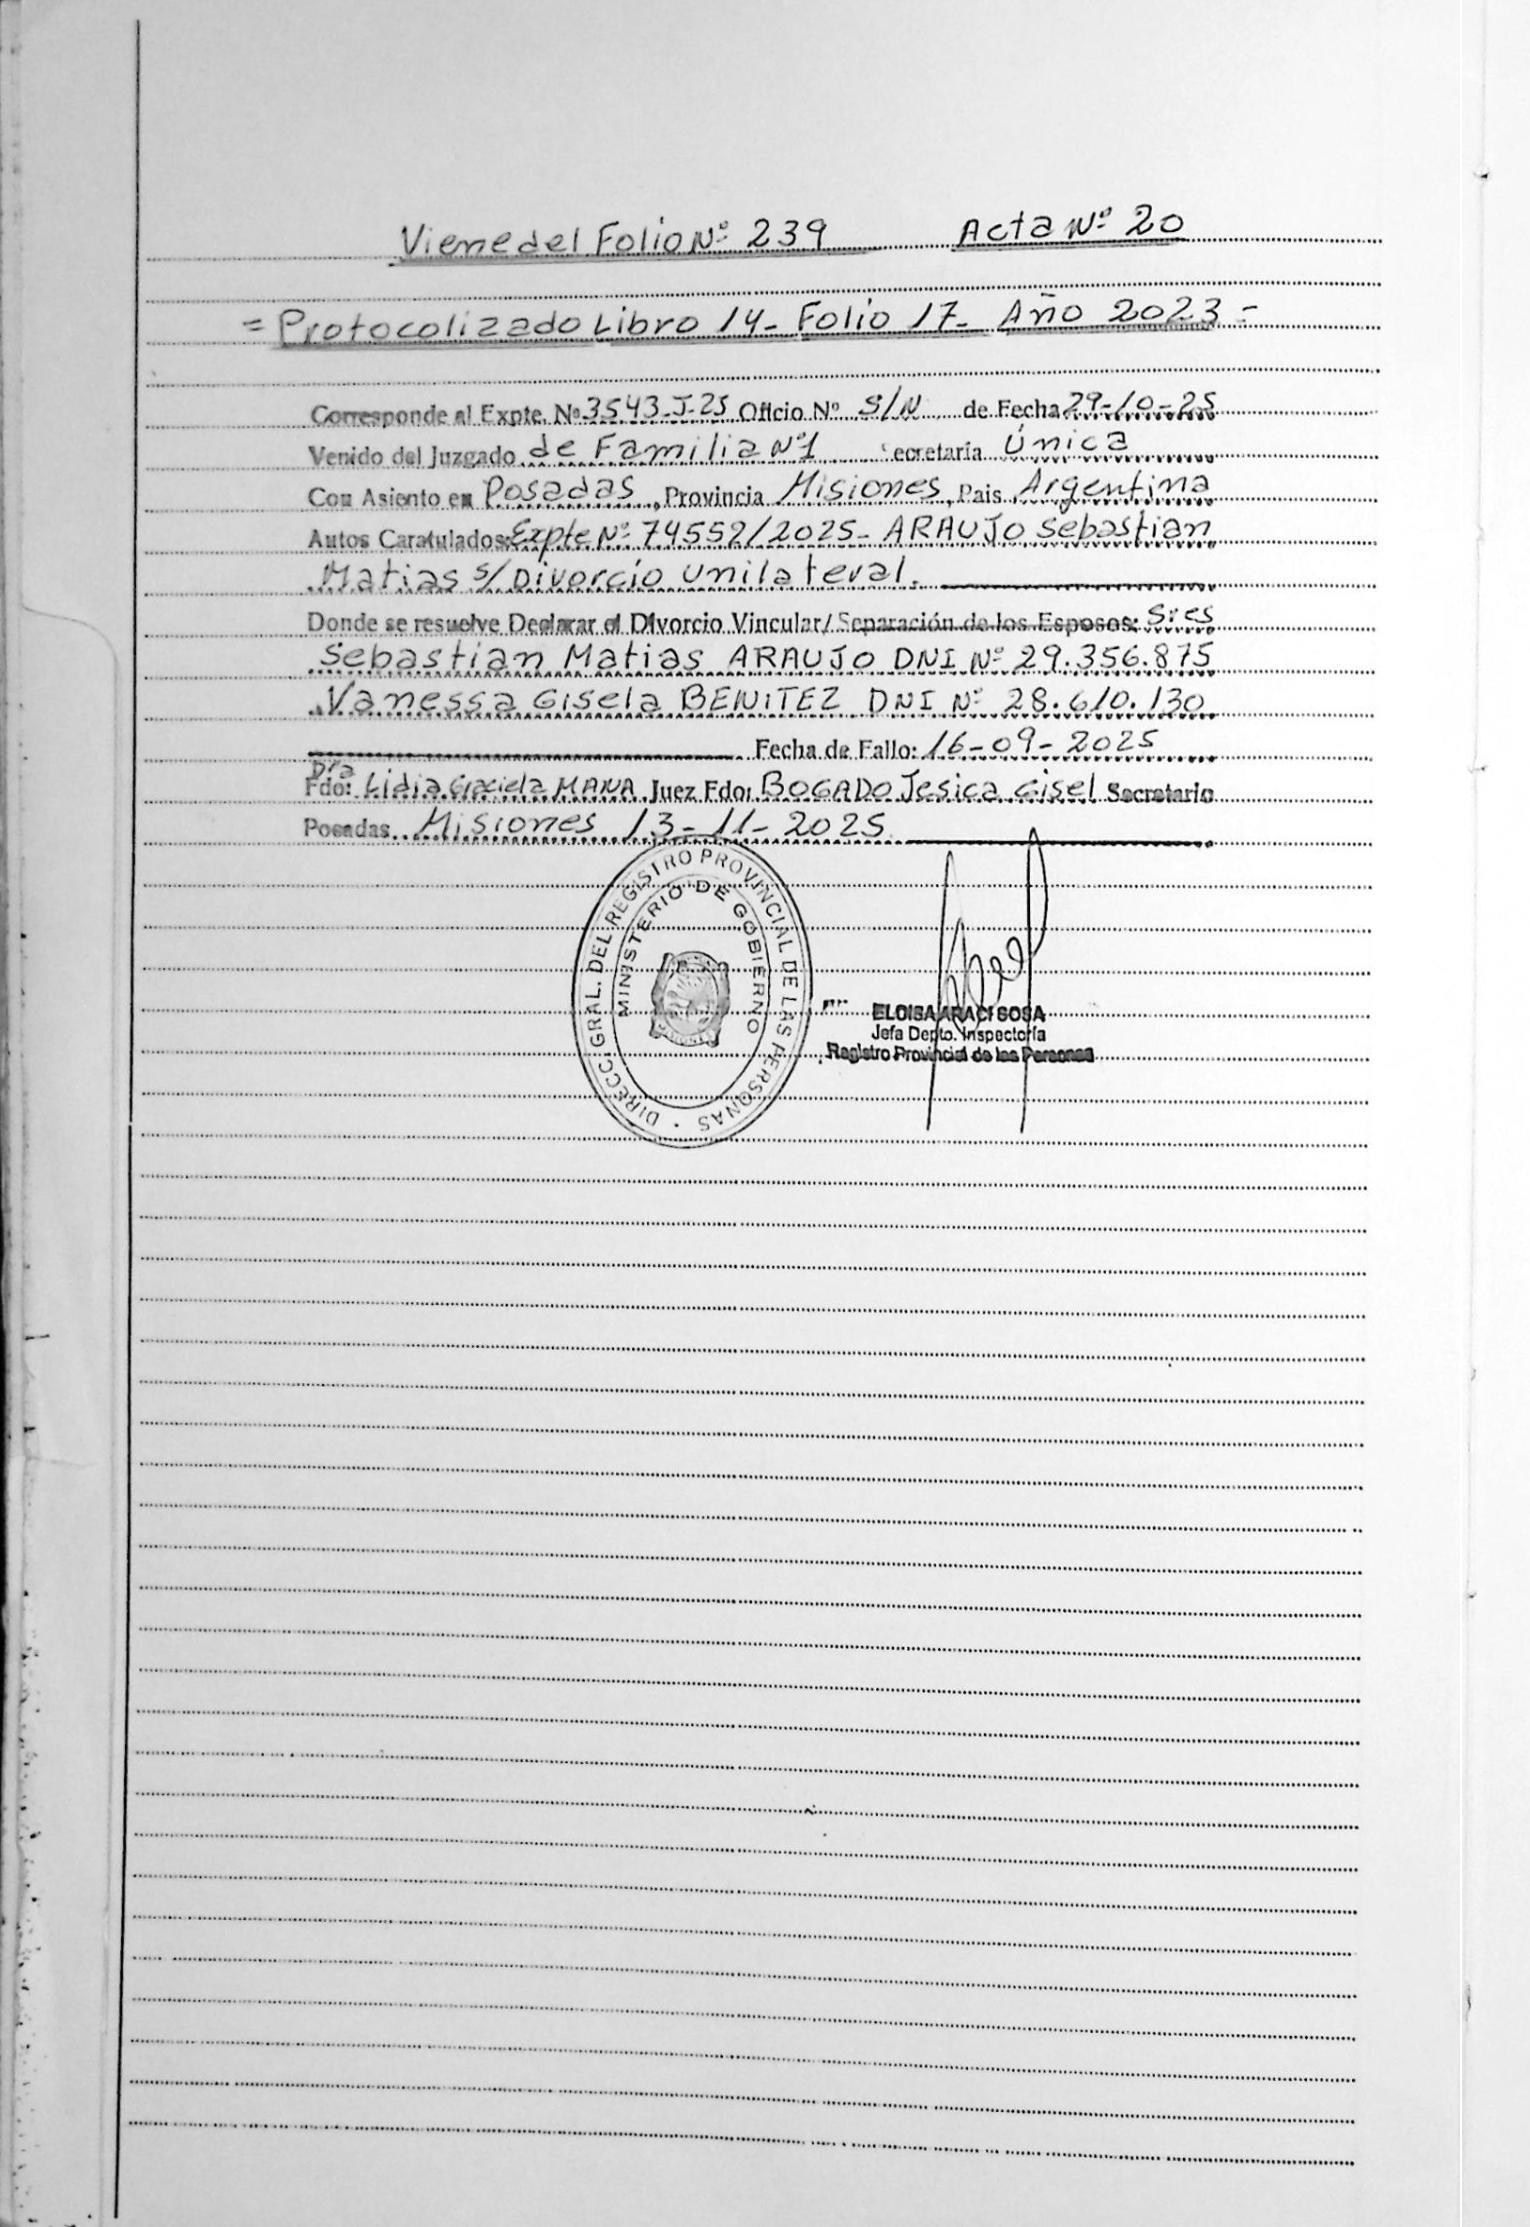 Viene del Folio Nº 239 Acta Nº 20
= Protocolizado Libro 14 - Folio 17 - Año 2023 -
Corresponde al Expte. Nº 3543-J-25 Oficio Nº S/N de Fecha 29-10-25
Venido del Juzgado de Familia Nº1 ecretaría Única
Con Asiento en Posadas, Provincia Misiones, Pais Argentina
Autos Caratulados: Expte Nº 74552/2025 - ARAUJO Sebastian
Matias s/ Divorcio Unilateral.
Donde se resuelve Declarar el Divorcio Vincular/ Separación de los Esposos: Sres
Sebastian Matias ARAUJO DNI Nº 29.356.875
Vanessa Gisela BENITEZ DNI Nº 28.610.130
Fecha de Fallo: 16-09-2025
Dra
Fdo: Lidia Graciela MANA Juez Fdo: BOGADO Jesica Gisel Secretario
Posadas Misiones 13-11-2025
DIRECC. GRAL. DEL REGISTRO PROVINCIAL DE LAS PERSONAS
MINISTERIO DE GOBIERNO
ELOISA ARACI SOSA
Jefa Depto. Inspectoría
Registro Provincial de las Personas